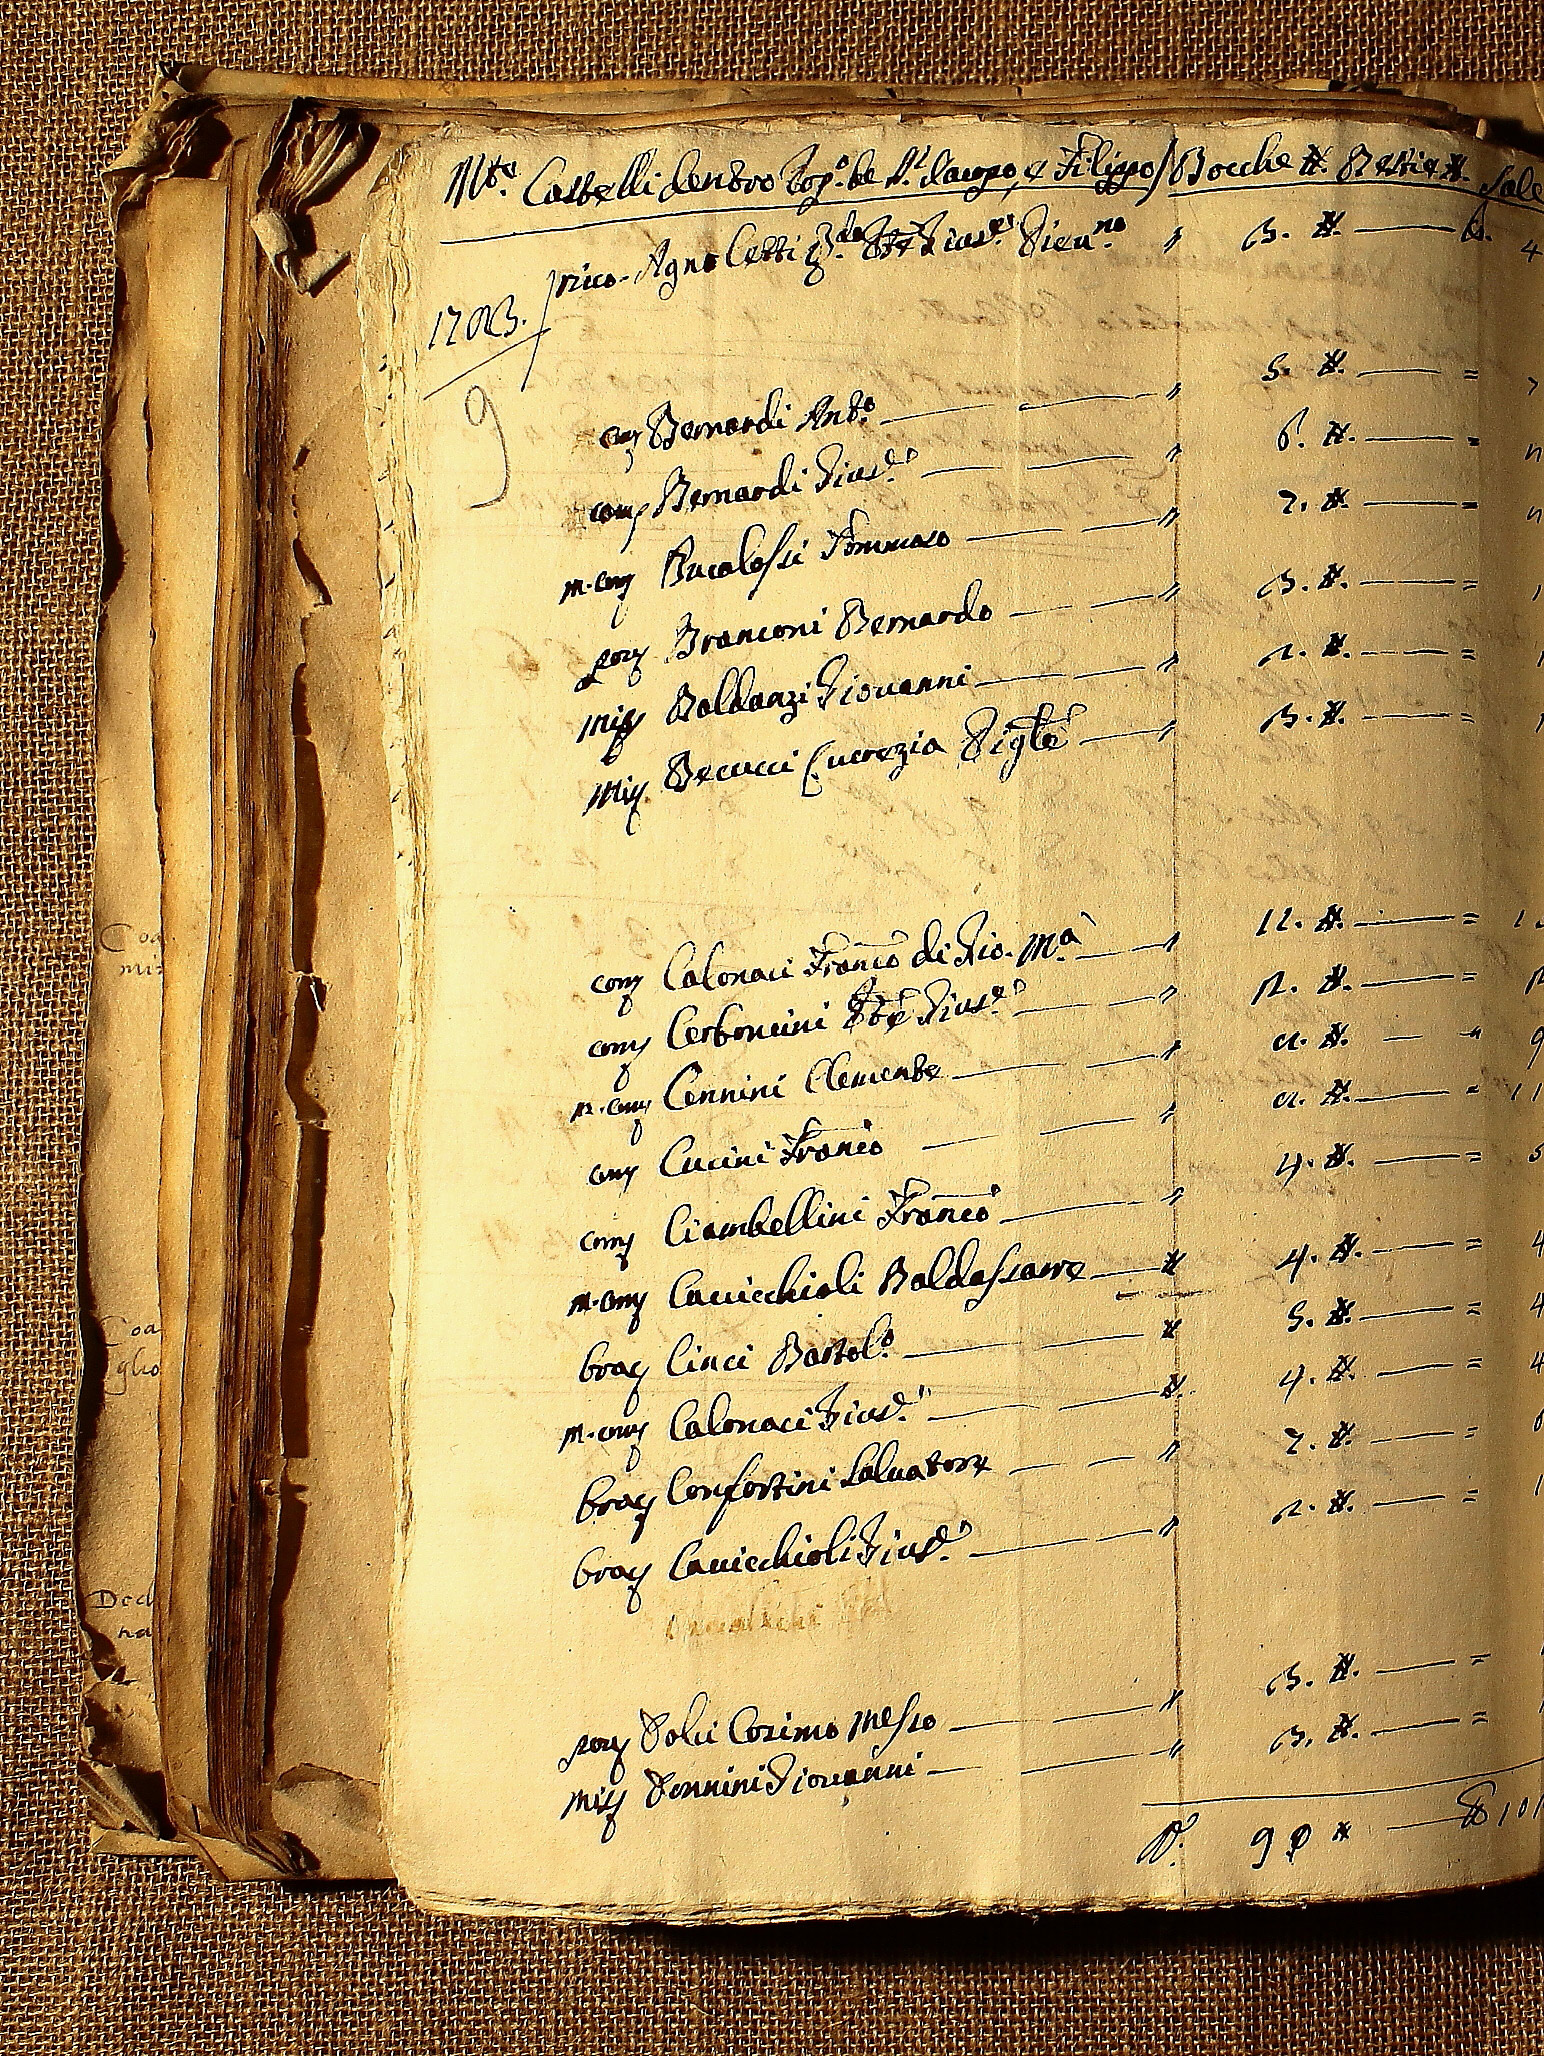 Mte. Castelli dentro Pop.o de S.ti Jacopo, e Filippo / Bocche #. Bestie #. Sale
rico- Agnoletti Giuse.
1703.
9
com Bernardi Ant.o — 5. #. — =
com Bernardi Gius.e — 6. #. — =
m. com Bucalossi Tommaso — 7. #. —
pov Branconi Bernardo — 3. #. — =
mis Baldanzi Giovanni — 2. #. — =
Mis Becucci Lucrezia — 3. #. — =
com Calonaci Franco di Gio. Ma — 11. #. — =
com Cerboncini Gius.e — #. — =
m. com Cennini Clemente — #. — "
com Cucini Franco — #. — = 11
com Ciambellini Franco — 4. #. — =
m. com Cavicchioli Baldassarre — # 4. #. — = 4
brac Cinci Bartol.o — # 5. #. — = 4
m. com Calonaci Gius.e — # 4. #. — = 4
brac Confortini Salvatore — 7. #. — =
brac Cavicchioli Gius.e — 2. #. — =
pov Dolci Cosimo Messo — 3. #. — =
mis Donnini Giovanni — 3. #. — =
9 # — 101
Coa
mis
Coa
glio
Decl
na